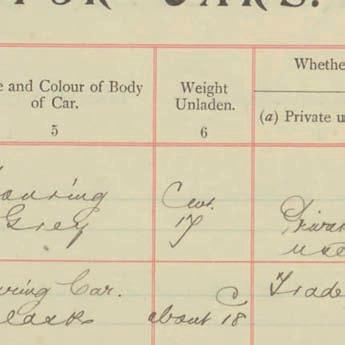 FOR CARS.
e and Colour of Body
of Car.
5
Weight
Unladen.
6
Whethe
(a) Private u
ouring
Grey
Cwt.
17
Privat
use
uring Car.
C
about 18
Trade